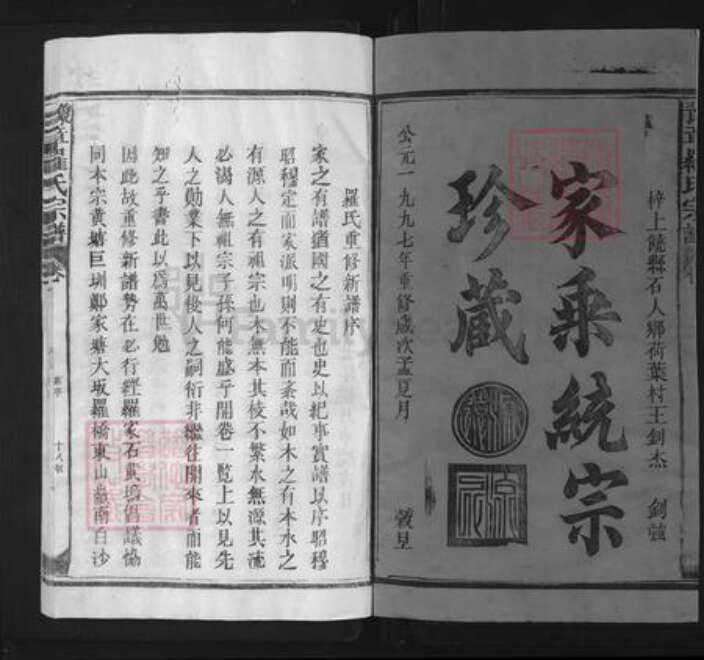 家乘統宗
珍藏
梓上饒縣石人鄉荷葉村王釗杰
公元一九九七年重修歲次丁丑夏月
穀旦
羅氏重修新譜序
家之有譜猶國之有史也史以紀事實譜以序昭穆
昭穆定而家派明則不能而紊哉如木之有本水之
有源人之有祖宗也木無本其枝不繁水無源其流
必渴人無祖宗子孫何能盛乎開卷一覧上以見先
人之勛業下以見後人之嗣衍非繼往開來者而能
知之乎書此以為萬世勉
因此故重修新譜勢在必行經羅家石黃塢倡議協
同本宗黃塘巨圳鄭家塘大坂羅橋東山嶺南白沙
豫章羅氏宗譜
十八號